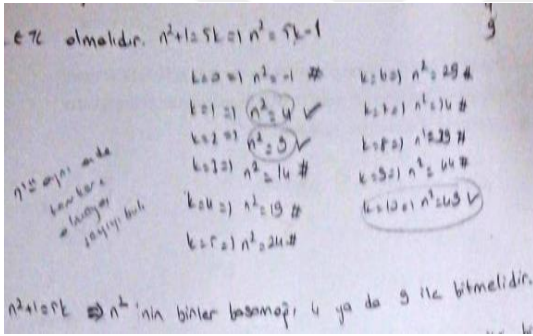 ∈ 𝒩 olmalıdır. n²+1=5k ⇒ n²=5k-1
k=0 ⇒ n²=-1 #
k=1 ⇒ n²=4 ✓
k=2 ⇒ n²=9 ✓
k=3 ⇒ n²=14 #
k=4 ⇒ n²=19 #
k=5 ⇒ n²=24 #
k=6 ⇒ n²=29 #
k=7 ⇒ n²=34 #
k=8 ⇒ n²=39 #
k=9 ⇒ n²=44 #
k=10 ⇒ n²=49 ✓
aynı anda
tam kare
olmayan
sayıyı bul
n²+1=5k ⇒ n² 'nin binler basamağı 4 ya da 9 ile bitmelidir.
9